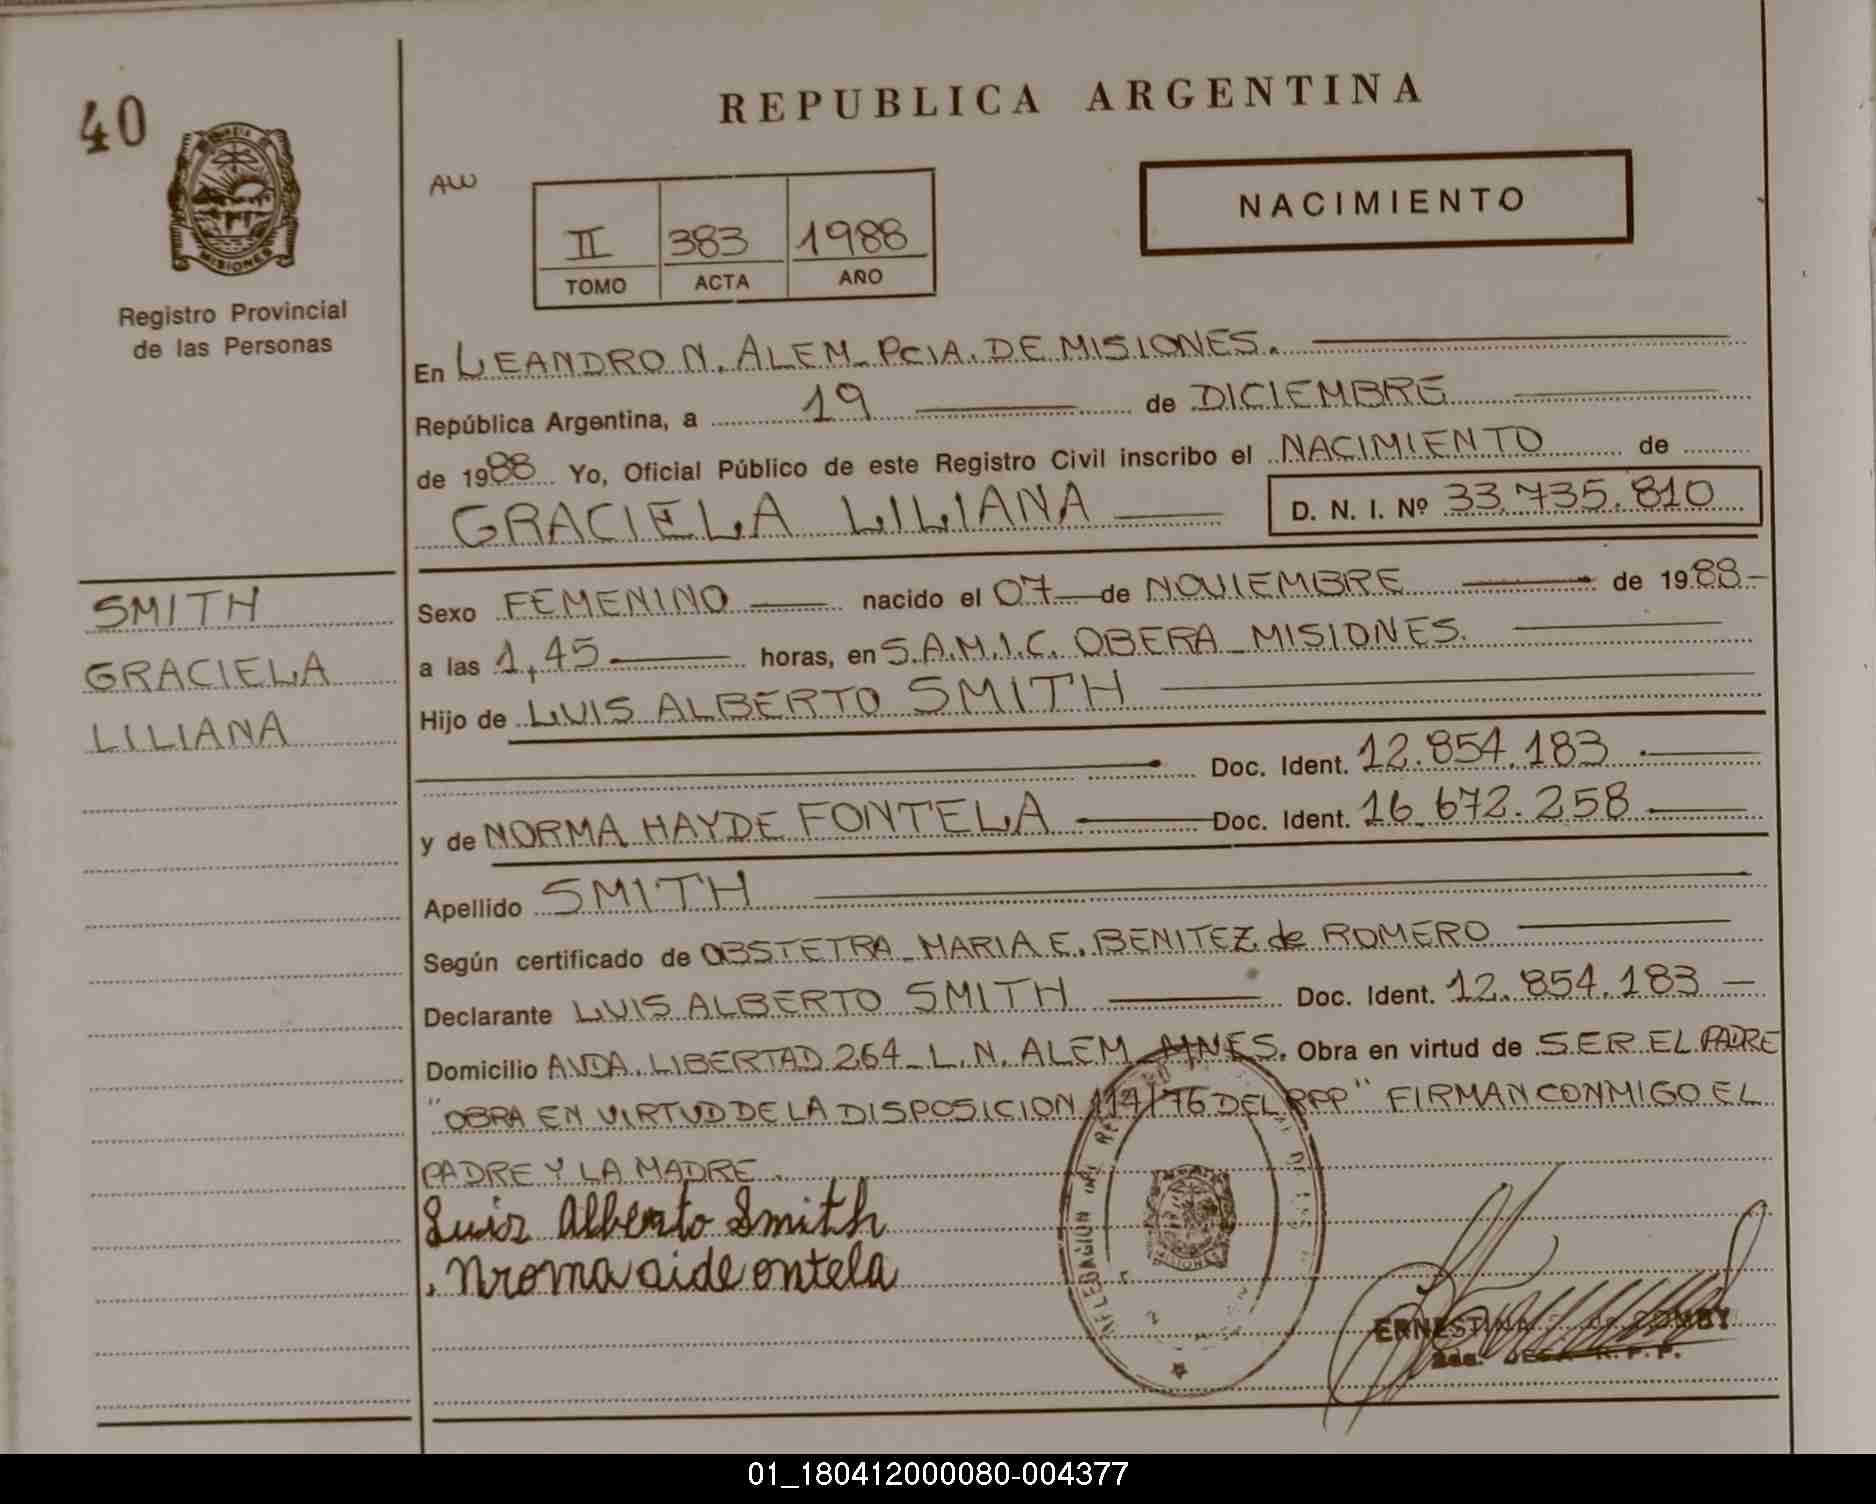 40
MISIONES
Registro Provincial
de las Personas
SMITH
GRACIELA
LILIANA
REPUBLICA ARGENTINA
AW
II 383 1988
TOMO ACTA AÑO
NACIMIENTO
En LEANDRO N. ALEM_PCIA. DE MISIONES.
República Argentina, a 19 de DICIEMBRE
de 1988 Yo, Oficial Público de este Registro Civil inscribo el NACIMIENTO de
GRACIELA LILIANA D. N. I. Nº 33.735.810
Sexo FEMENINO nacido el 07 de NOVIEMBRE de 1988
a las 1,45 horas, en S.A.M.I.C. OBERA_MISIONES.
Hijo de LUIS ALBERTO SMITH
Doc. Ident. 12.854.183
y de NORMA HAYDE FONTELA Doc. Ident. 16.672.258
Apellido SMITH
Según certificado de OBSTETRA_MARIA E. BENITEZ de ROMERO
Declarante LUIS ALBERTO SMITH Doc. Ident. 12.854.183
Domicilio AVDA. LIBERTAD 264_L.N. ALEM_MNES. Obra en virtud de SER EL PADRE
"OBRA EN VIRTUD DE LA DISPOSICION 117/76 DEL RPP" FIRMAN CONMIGO EL
PADRE Y LA MADRE.
Luis Alberto Smith
Nroma aide ontela
ERNESTINA
R.P.P.
01_180412000080-004377